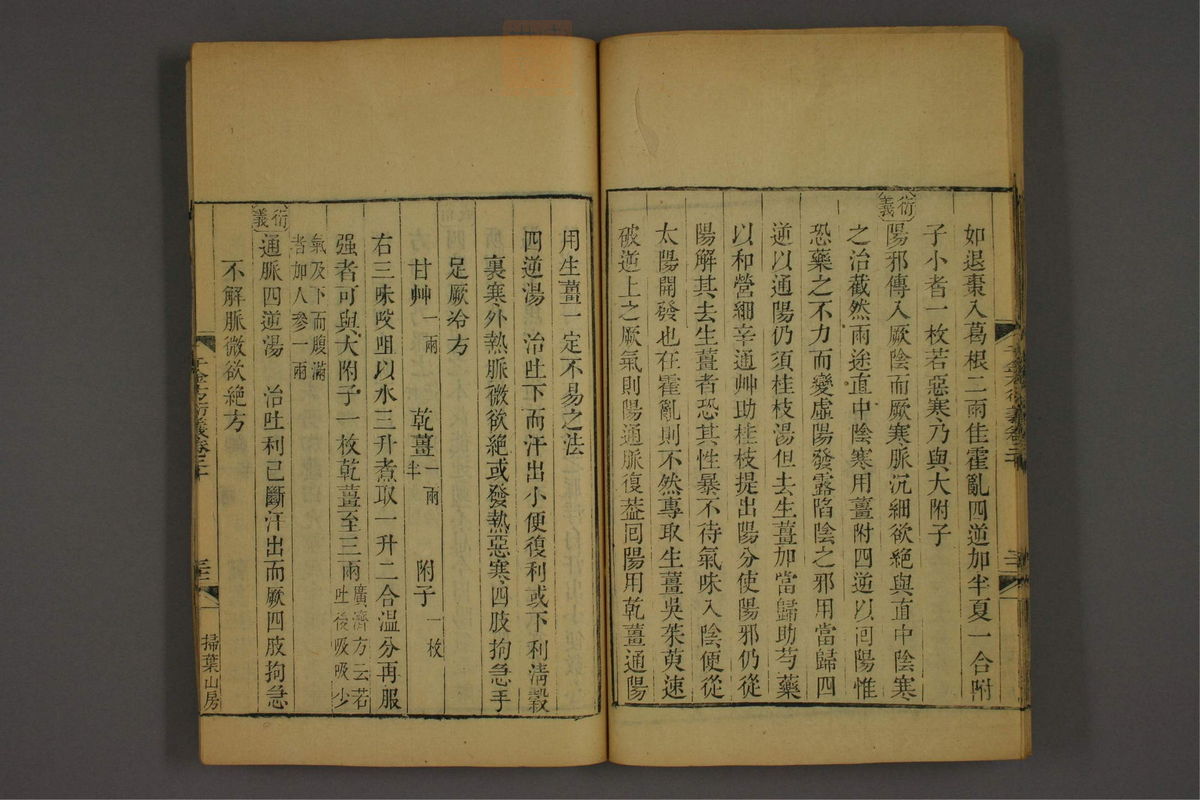 如退棗入葛根二兩佳霍亂四逆加半夏一合附
子小者一枚若惡寒乃與大附子
衍義
陽邪傳入厥陰而厥寒脈沉細欲絶與直中陰寒
之治截然兩途直中陰寒用薑附四逆以囘陽惟
恐藥之不力而變虛陽發露陷陰之邪用當歸四
逆以通陽仍須桂枝湯但去生薑加當歸助芍藥
以和營細辛通艸助桂枝提出陽分使陽邪仍從
陽解其去生薑者恐其性暴不待氣味入陰便從
太陽開發也在霍亂則不然專取生薑吳茱萸速
破逆上之厥氣則陽通脈復葢囘陽用乾薑通陽
用生薑一定不易之法
四逆湯 治吐下而汗出小便復利或下利淸穀
裏寒外熱脈微欲絶或發熱惡寒四肢拘急手
足厥冷方
甘艸一兩 乾薑一兩半 附子一枚
右三味㕮咀以水三升煮取一升二合溫分再服
强者可與大附子一枚乾薑至三兩廣濟方云若吐後吸吸少
氣及下而腹滿者加人參一兩
衍義
通脈四逆湯 治吐利已斷汗出而厥四肢拘急
不解脈微欲絶方
千金方衍義卷二十
掃葉山房